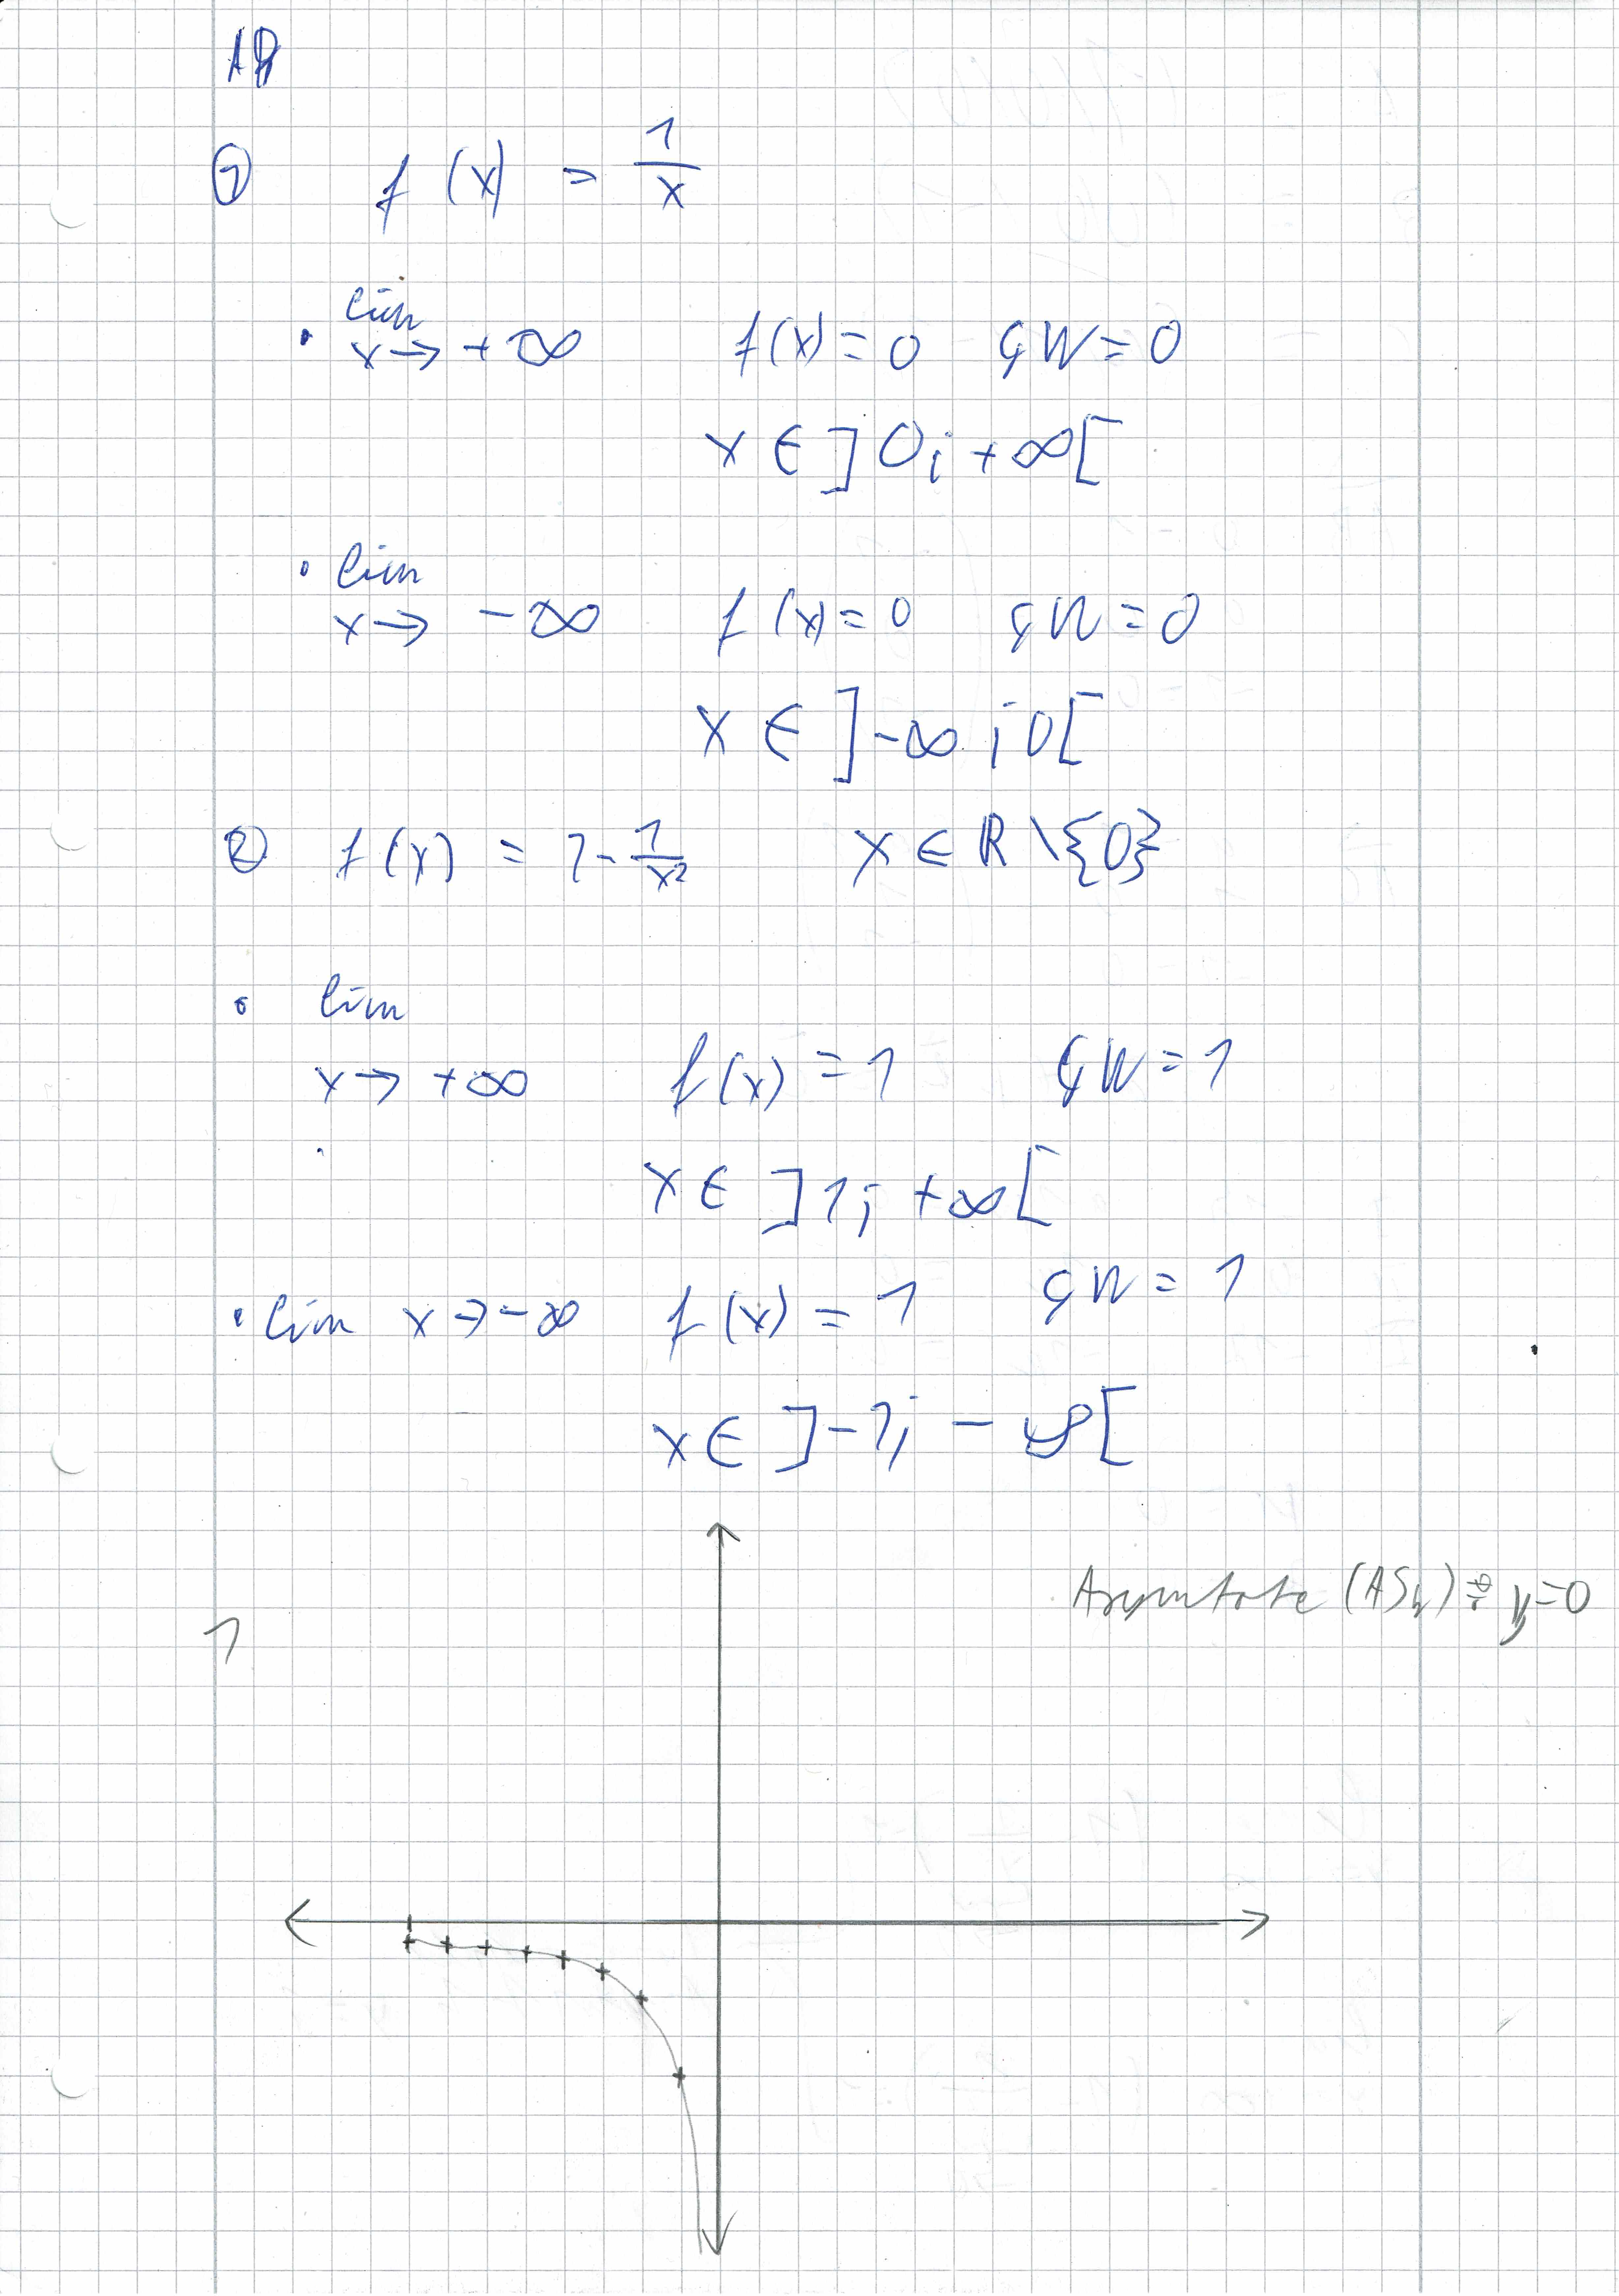 AB
① f(x) = 1/x
• lim x→ +∞ f(x) = 0 GW = 0
x ∈ ]0; +∞[
• lim x→ -∞ f(x) = 0 GW = 0
x ∈ ]-∞; 0[
② f(x) = 1 - 1/x² x ∈ ℝ \ {0}
• lim x→ +∞ f(x) = 1 GW = 1
x ∈ ]1; +∞[
• lim x→ -∞ f(x) = 1 GW = 1
x ∈ ]-1; -∞[
Asymtote (ASy) : y=0
1